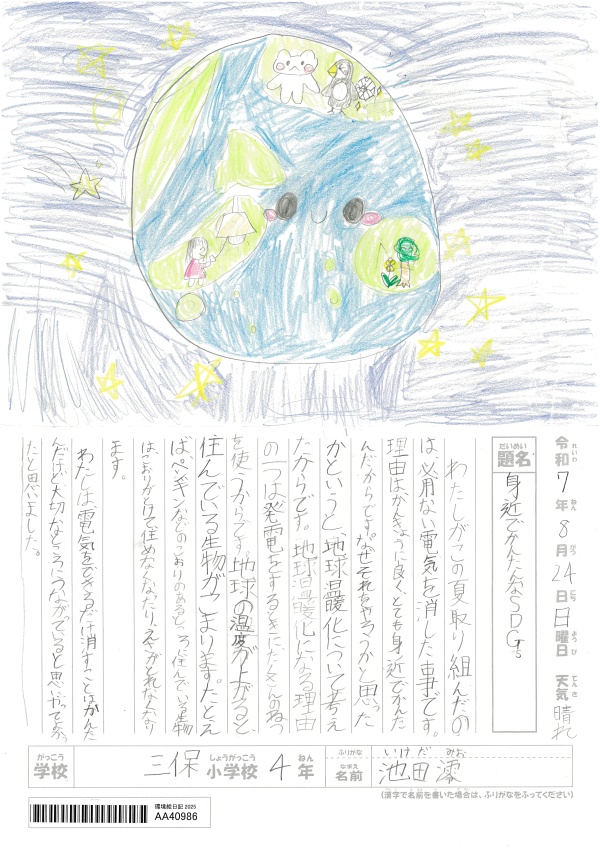 令和7年8月24日日曜日 天気 晴れ
れいわ ねん がつ にち ようび てんき
だいめい
題名 身近でかんたんなSDGs
わたしがこの夏取り組んだの
は、必用ない電気を消した事です。
理由はかんきょうに良く、とても身近でかんた
んだからです。なぜそれをやろうかと思った
かというと、地球温暖化について考え
たからです。地球温暖化になる理由
の一つは発電をするときにたくさんのねつ
を使うからです。地球の温度が上がると、
住んでいる生物がこまります。たとえ
ば、ペンギンなどのこおりのあるところに住んでいる生物
は、こおりがとけて住めなくなったり、えさがとれなくなり
ます。
わたしは、電気をできるだけ消すことはかんた
んだけど大切なところにつながっていると思い、やってよかっ
たと思いました。
がっこう しょうがっこう ねん ふりがな いけだ みお
学校 三保 小学校 4年 なまえ 名前 池田 澪
(漢字で名前を書いた場合は、ふりがなをふってください)
環境絵日記 2025
AA40986